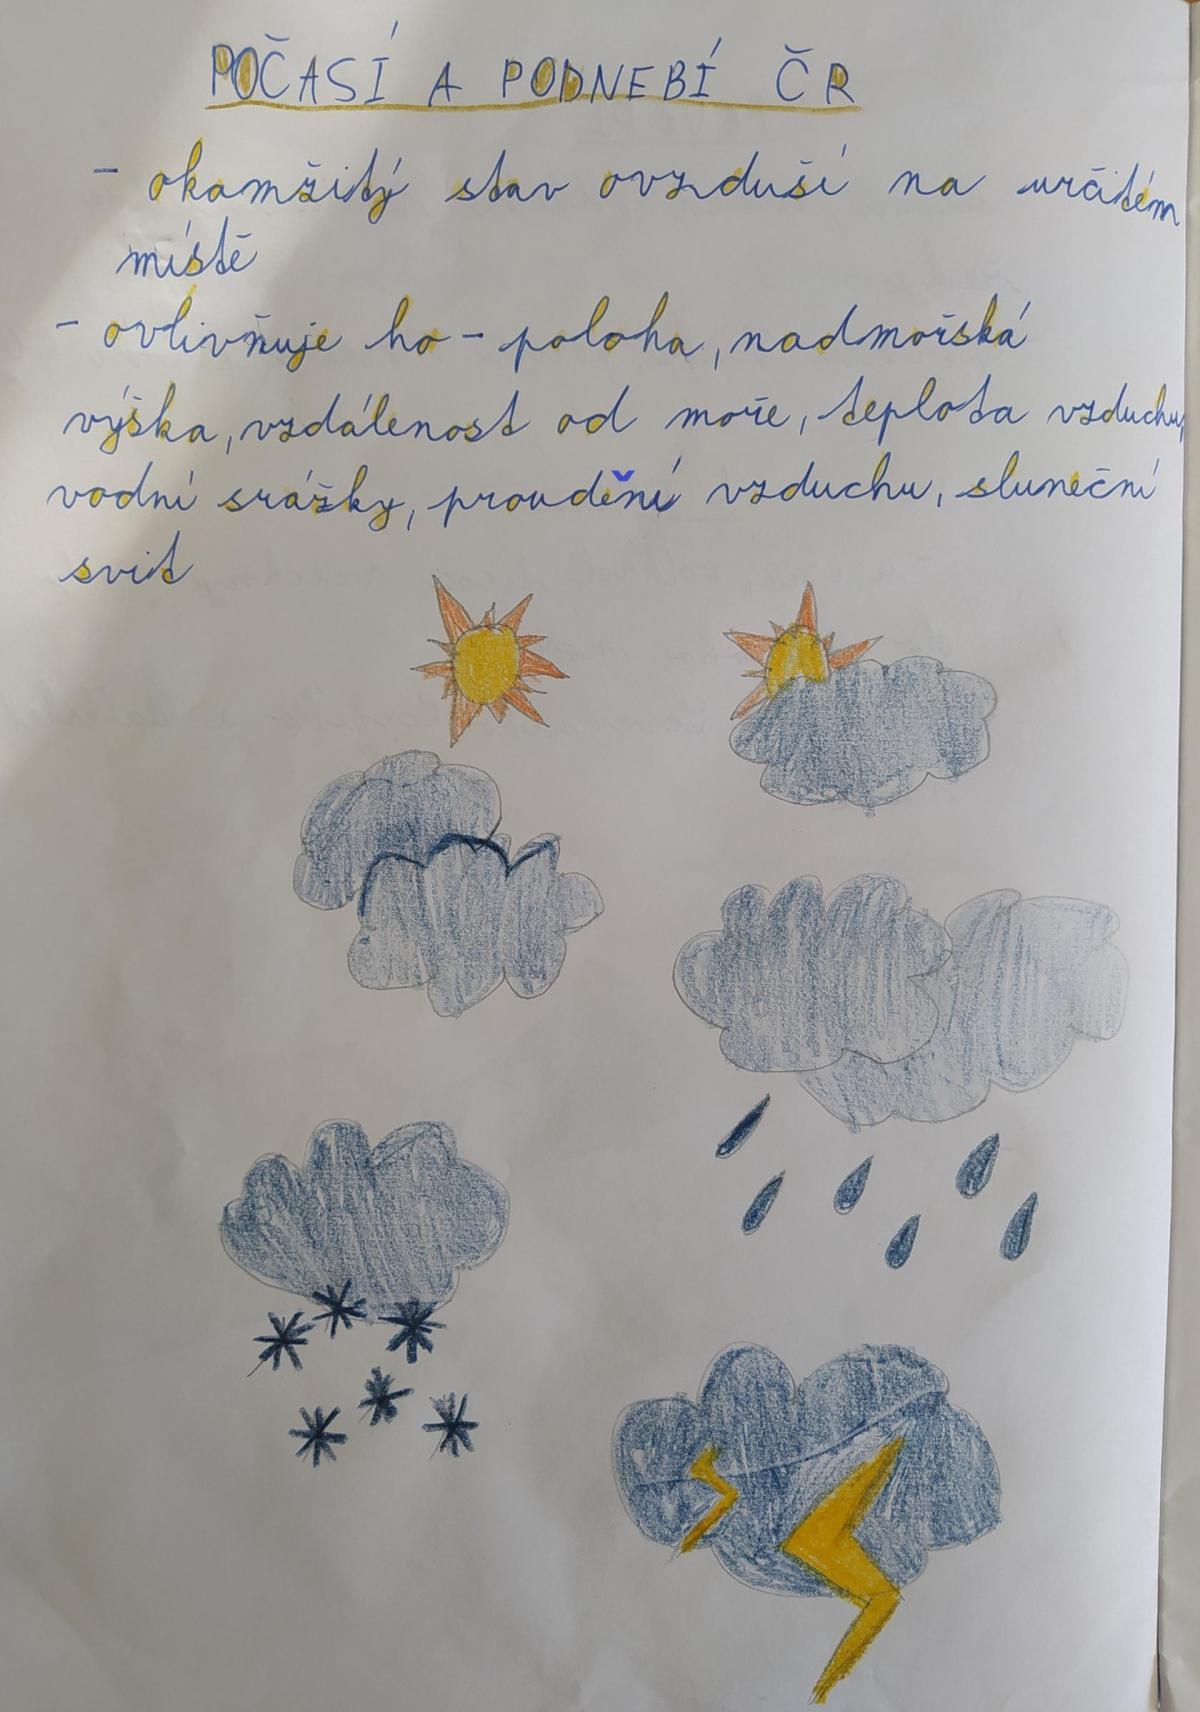 POČASÍ A PODNEBÍ ČR
- okamžitý stav ovzduší na určitém
místě
- ovlivňuje ho - poloha, nadmořská
výška, vzdálenost od moře, teplota vzduchu,
vodní srážky, proudění vzduchu, sluneční
svit